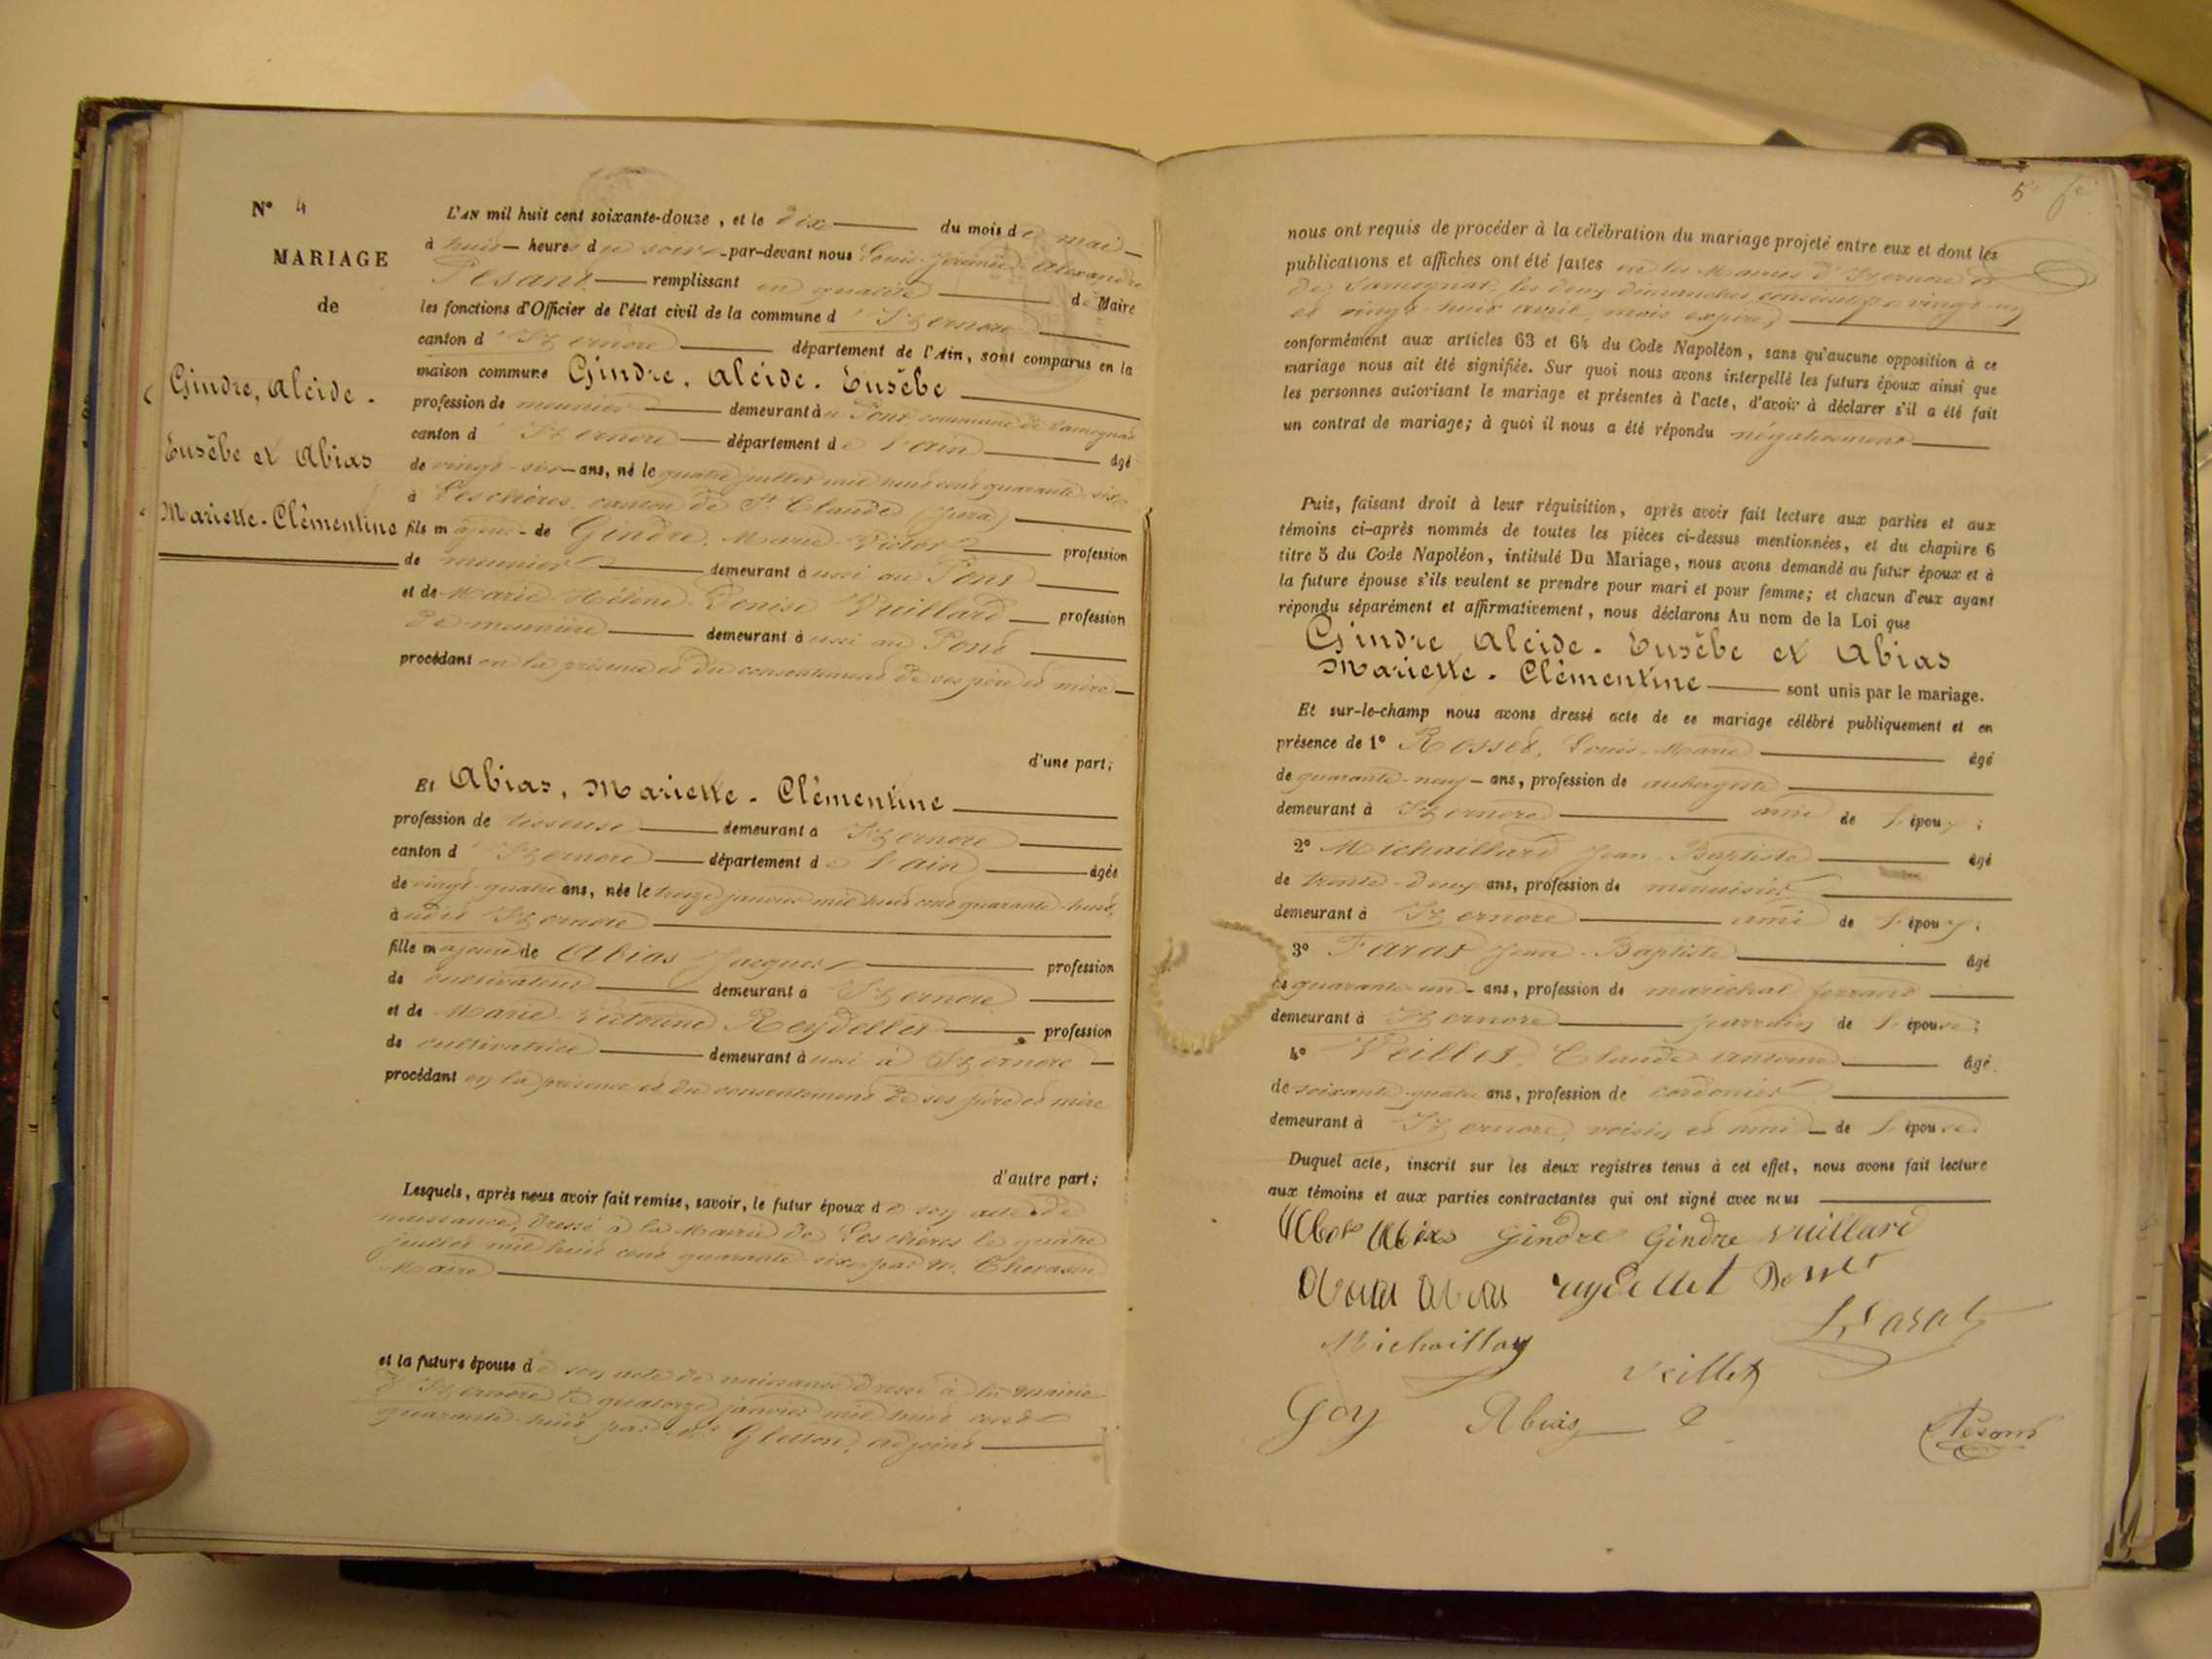 N° 4
MARIAGE
de
Gindre, Alcide -
Eusèbe et Abias
Mariette-Clémentine
L'AN mil huit cent soixante-douze, et le dix du mois de mai
à huit heures du soir par-devant nous Louis-Jérémie Alexandre
Pesant remplissant en qualité de Maire
les fonctions d'Officier de l'état civil de la commune d'Izernore
canton d'Izernore département de l'Ain, sont comparus en la
maison commune Gindre, Alcide-Eusèbe
profession de meunier demeurant au Pont, commune de Samognat
canton d'Izernore département de l'Ain âgé
de vingt-six ans, né le quatre juillet mil huit cent quarante-six
à Leschères, canton de St Claude (Jura)
fils majeur de Gindre, Marie-Victor profession
de meunier demeurant aussi au Pont
et de Marie-Hélène-Denise Vuillard profession
de meunière demeurant aussi au Pont
procédant en la présence et du consentement de ses père et mère
d'une part;
Et Abias, Mariette-Clémentine
profession de tisseuse demeurant à Izernore
canton d'Izernore département de l'Ain âgée
de vingt-quatre ans, née le treize janvier mil huit cent quarante-huit,
audit Izernore
fille majeure de Abias Jacques profession
de cultivateur demeurant à Izernore
et de Marie-Victorine Reydellet profession
de cultivatrice demeurant aussi à Izernore
procédant en la présence et du consentement de ses père et mère
d'autre part;
Lesquels, après nous avoir fait remise, savoir, le futur époux de son acte de
naissance, dressé à la Mairie de Leschères le quatre
juillet mil huit cent quarante-six, par M.
Maire
et la future épouse de son acte de naissance dressé à la Mairie
d'Izernore le quatorze janvier mil huit cent
quarante-huit, par Mr adjoint
5e
nous ont requis de procéder à la célébration du mariage projeté entre eux et dont les
publications et affiches ont été faites en les Mairies d'Izernore et
de Samognat, les deux dimanches consécutifs vingt-un
et vingt-huit avril, mois expiré,
conformément aux articles 63 et 64 du Code Napoléon, sans qu'aucune opposition à ce
mariage nous ait été signifiée. Sur quoi nous avons interpellé les futurs époux ainsi que
les personnes autorisant le mariage et présentes à l'acte, d'avoir à déclarer s'il a été fait
un contrat de mariage; à quoi il nous a été répondu négativement
Puis, faisant droit à leur réquisition, après avoir fait lecture aux parties et aux
témoins ci-après nommés de toutes les pièces ci-dessus mentionnées, et du chapitre 6
titre 5 du Code Napoléon, intitulé Du Mariage, nous avons demandé au futur époux et à
la future épouse s'ils veulent se prendre pour mari et pour femme; et chacun d'eux ayant
répondu séparément et affirmativement, nous déclarons Au nom de la Loi que
Gindre Alcide-Eusèbe et Abias
Mariette-Clémentine sont unis par le mariage.
Et sur-le-champ nous avons dressé acte de ce mariage célébré publiquement et en
présence de 1° Rosset, Louis-Marie âgé
de quarante-neuf ans, profession de aubergiste
demeurant à Izernore ami de l'époux;
2° Michaillard Jean-Baptiste âgé
de trente-deux ans, profession de menuisier
demeurant à Izernore ami de l'époux;
3° Farat Jean-Baptiste âgé
de quarante-un ans, profession de maréchal ferrant
demeurant à Izernore parrain de l'épouse;
4° Veillet, Claude Antoine âgé
de soixante-quatre ans, profession de cordonier
demeurant à Izernore, voisin et ami de l'épouse.
Duquel acte, inscrit sur les deux registres tenus à cet effet, nous avons fait lecture
aux témoins et aux parties contractantes qui ont signé avec nous
Abias Gindre Gindre Vuillard
Abias reydellet Rosset
Michaillard Farat
Veillet
Goy Abias Pesant